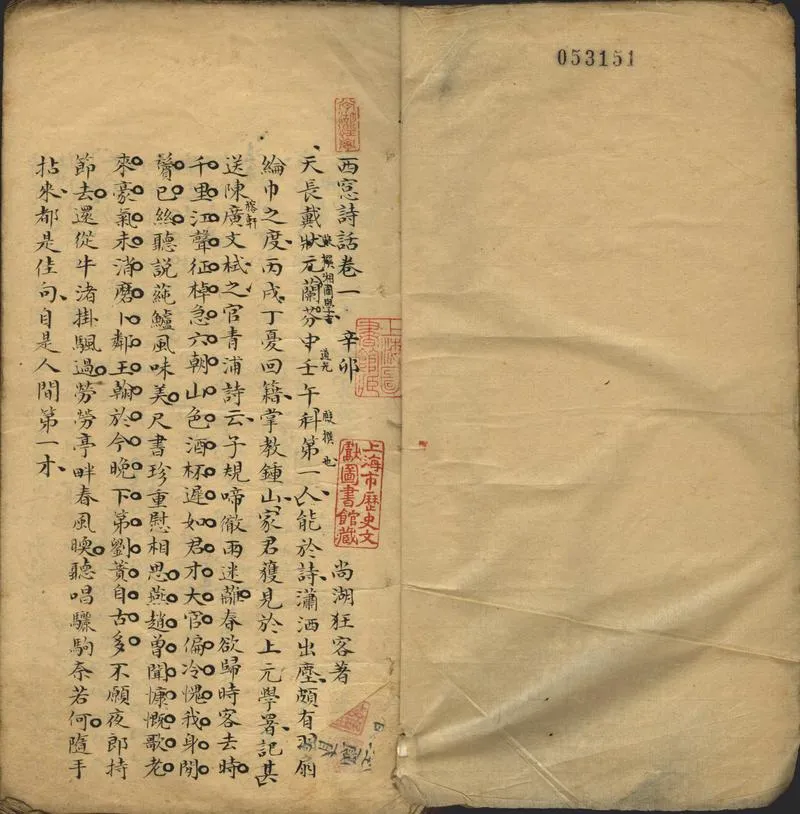 053151
西窓詩話卷一 辛卯 尚湖狂客著
天長戴狀元蘭芬申壬午科第一人能於詩瀟洒出塵頗有羽扇
道光
殿撰也
綸巾之度丙戌丁憂回籍掌教鍾山家君獲見於上元學署記其
送陳廣文栻之官青浦詩云子規啼徹雨迷離春欲歸時客去時
稼軒
千里江聲征棹急六朝山色酒杯遲如君才大官偏冷愧我身閒
鬢已絲聽說蒓鱸風味美尺書珍重慰相思燕趙曾聞慷慨歌老
來豪氣未消磨卜鄰王翰於今晚下第劉蕡自古多不願夜郎持
節去還從牛渚掛颿過勞勞亭畔春風㬉聽唱驪駒奈若何隨手
拈來都是佳句自是人間第一才
上海市歷史文
獻圖書館藏
上海圖
書館藏